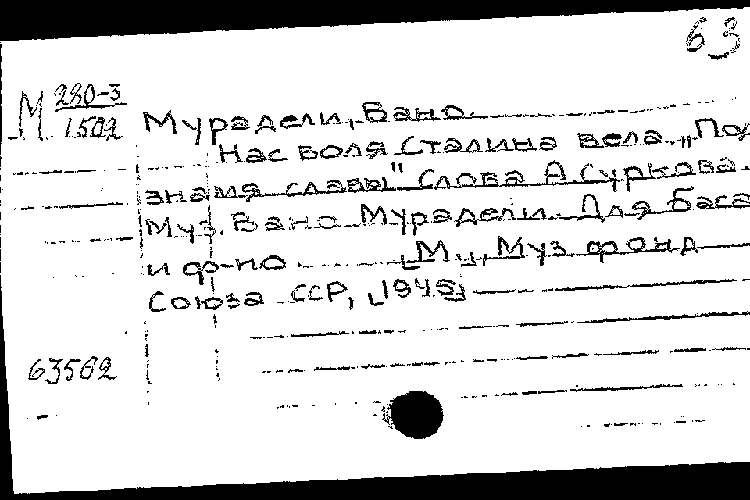 63
М 280-3
1502
Мурадели, Вано.
Нас воля Сталина вела. „Под
знамя славы" Слова А. Суркова.
Муз. Вано Мурадели. Для баса
и ф-но. [М.], Муз. фонд
Союза ССР, [1945]
63562